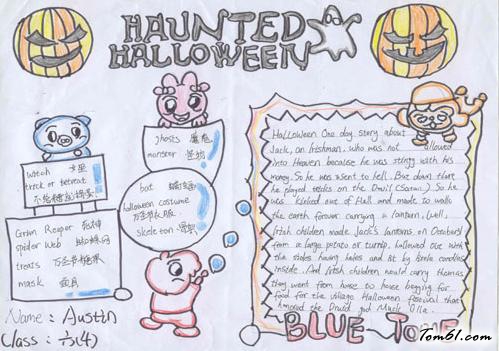 HAUNTED
HALLOWEEN
ghosts 魔鬼
monster 怪物
witch 女巫
trick or tereat
不给糖就捣蛋!
bat 蝙蝠
halloween costume
万圣节服
skeleton 骨架
Grim Reaper 死神
spider web 蜘蛛网
treats 万圣节糖果
mask 面具
Name: Austin
Class: 六(4)
Halloween One day story about
Jack, an Irishman, who was not allowed
into Heaven because he was stingy with his
money. So he was sent to hell. But down there
he played tricks on the Devil (Satan). So he
was kicked out of Hell and made to walk
the earth forever carrying a lantern. Well,
Irish children made Jack's lanterns on October
from a large potato or turnip, hollowed out with
the sides having holes and lit by little candles
inside. And Irish children would carry them as
they went from house to house begging for
food for the village Halloween festival that
honored the Druid god Muck Olla.
BLUE
Tom61.com